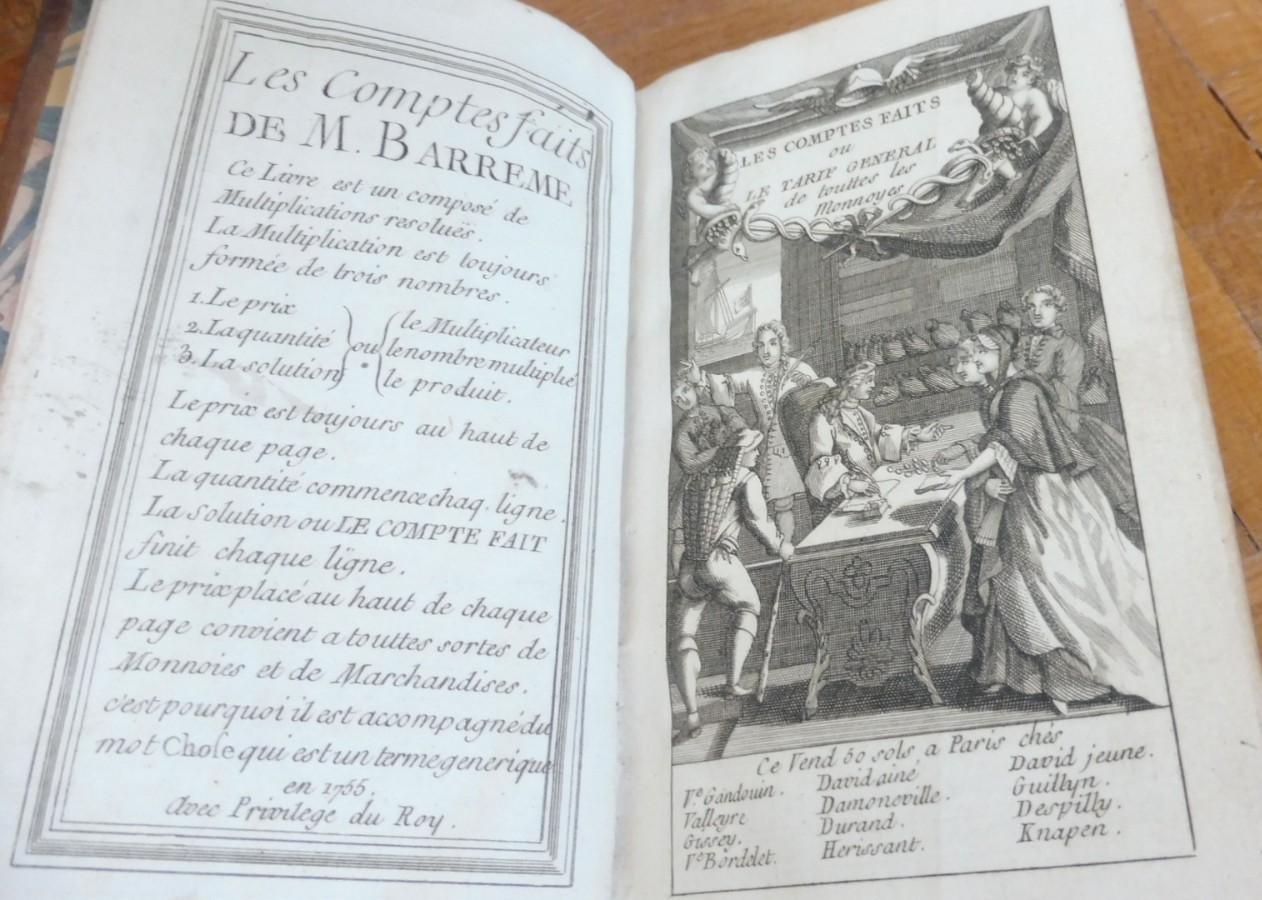 Les Comptes faits
DE M. BARREME
Ce Livre est un composé de
Multiplications resoluës.
La Multiplication est toujours
formée de trois nombres.
1. Le prix
2. La quantité
3. La solution
ou
le Multiplicateur
le nombre multiplié
le produit.
Le prix est toujours au haut de
chaque page.
La quantité commence chaq. ligne.
La solution ou LE COMPTE FAIT
finit chaque ligne.
Le prix placé au haut de chaque
page convient a touttes sortes de
Monnoies et de Marchandises.
c'est pourquoi il est accompagné du
mot Chose qui est un terme generique
en 1755.
Avec Privilege du Roy.
LES COMPTES FAITS
ou
LE TARIF GENERAL
de touttes les
Monnoyes
Ce Vend 50 sols a Paris chés
Ve. Gandouin.
Valleyre
Gissey.
Ve Bordelet.
David ainé
Damoneville.
Durand.
Herissant.
David jeune.
Guillyn.
Despilly.
Knapen.